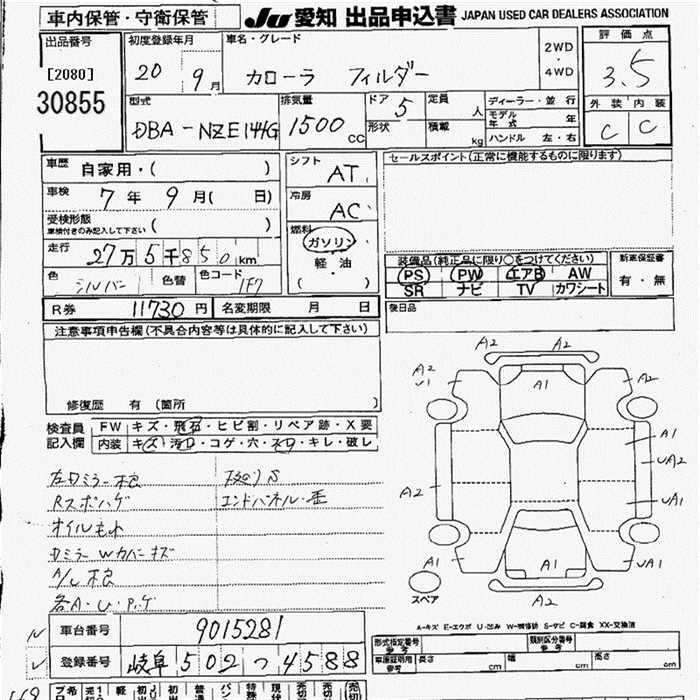 車内保管・守衛保管
JU 愛知 出品申込書 JAPAN USED CAR DEALERS ASSOCIATION
出品番号
[2080]
30855
初度登録年月
20 9月
車名・グレード
カローラ フィルダー
2WD
・
4WD
評価点
3.5
外装 内装
C C
型式
DBA-NZE144G
排気量
1500 cc
ドア 5
形状
定員 人
積載 kg
ディーラー・並行
モデル年式 年
ハンドル 左・右
車歴 自家用・( )
車検 7年 9月( 日)
受検形態
車検付きのみ記入して下さい ( )
走行 27万5千850km
色 シルバー 色替 色コード 1F7
シフト AT
冷房 AC
燃料
ガソリン
軽・油
( )
セールスポイント(正常に機能するものに限ります)
装備品(純正品に限り○をつけてください)
PS PW エアB AW
SR ナビ TV カワシート
新車保証書
有・無
後日品
R券 11730円 名変期限 月 日
注意事項申告欄(不具合内容等は具体的に記入して下さい)
修復歴 有 (箇所 )
検査員記入欄
FW キズ・飛石・ヒビ割・リペア跡・X要
内装 キズ・汚レ・コゲ・穴・スレ・キレ・破レ
Rスポハゲ エンドパネル・歪
オイルもれ
DミラーWカバーキズ
A/C不良
各A・U・P・ゲ
A2 A2
A2
U1
A1
A2
A1
UA2
A2
UA1
A1
A1
UA1
スペア
A2
A-キズ E-エクボ U-凹み W-補修跡 S-サビ C-腐食 XX-交換済
車台番号 9015281
登録番号 岐阜 502 つ 4588
形式指定番号
参考
類別区分番号
参考
車庫証明用
参考
長さ cm
幅 cm
高さ cm